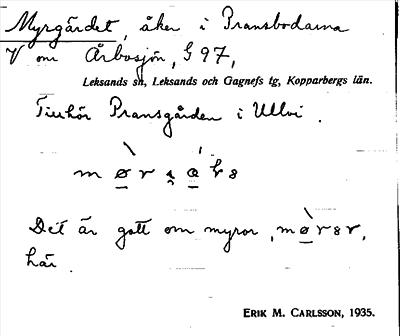 Myrgärdet, åker i Pransbodarna
V om Årbosjön, § 97,
Leksands sn, Leksands och Gagnefs tg, Kopparbergs län.
Tillhör Pransgården i Ullvi.
Det är gott om myror,
här.
ERIK M. CARLSSON, 1935.